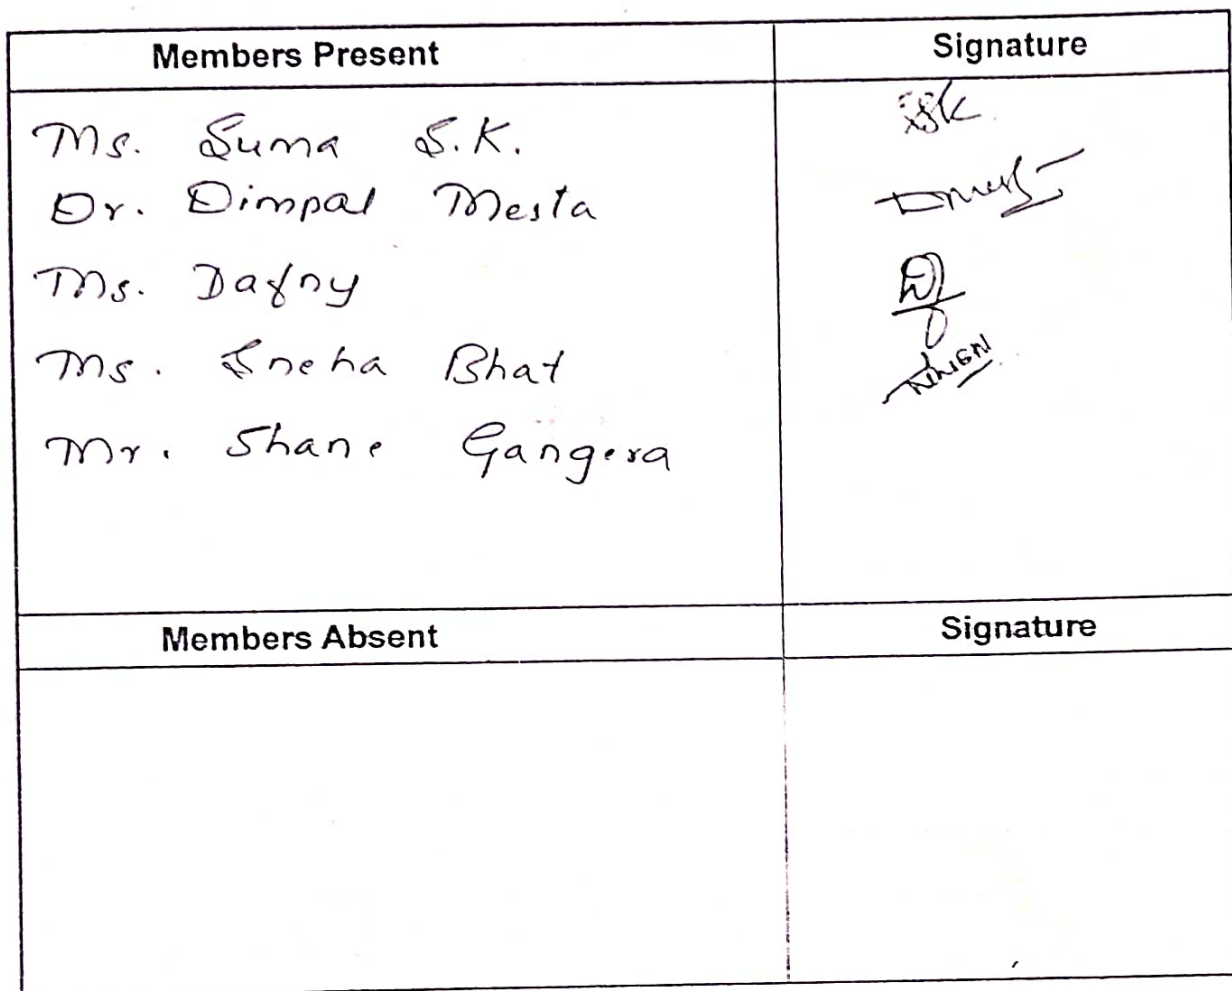 Members Present Signature
Ms. Suma S.K. SK
Dr. Dimpal Mesta
Ms. Dafny
Ms. Sneha Bhat
Mr. Shane Gangera
Members Absent Signature